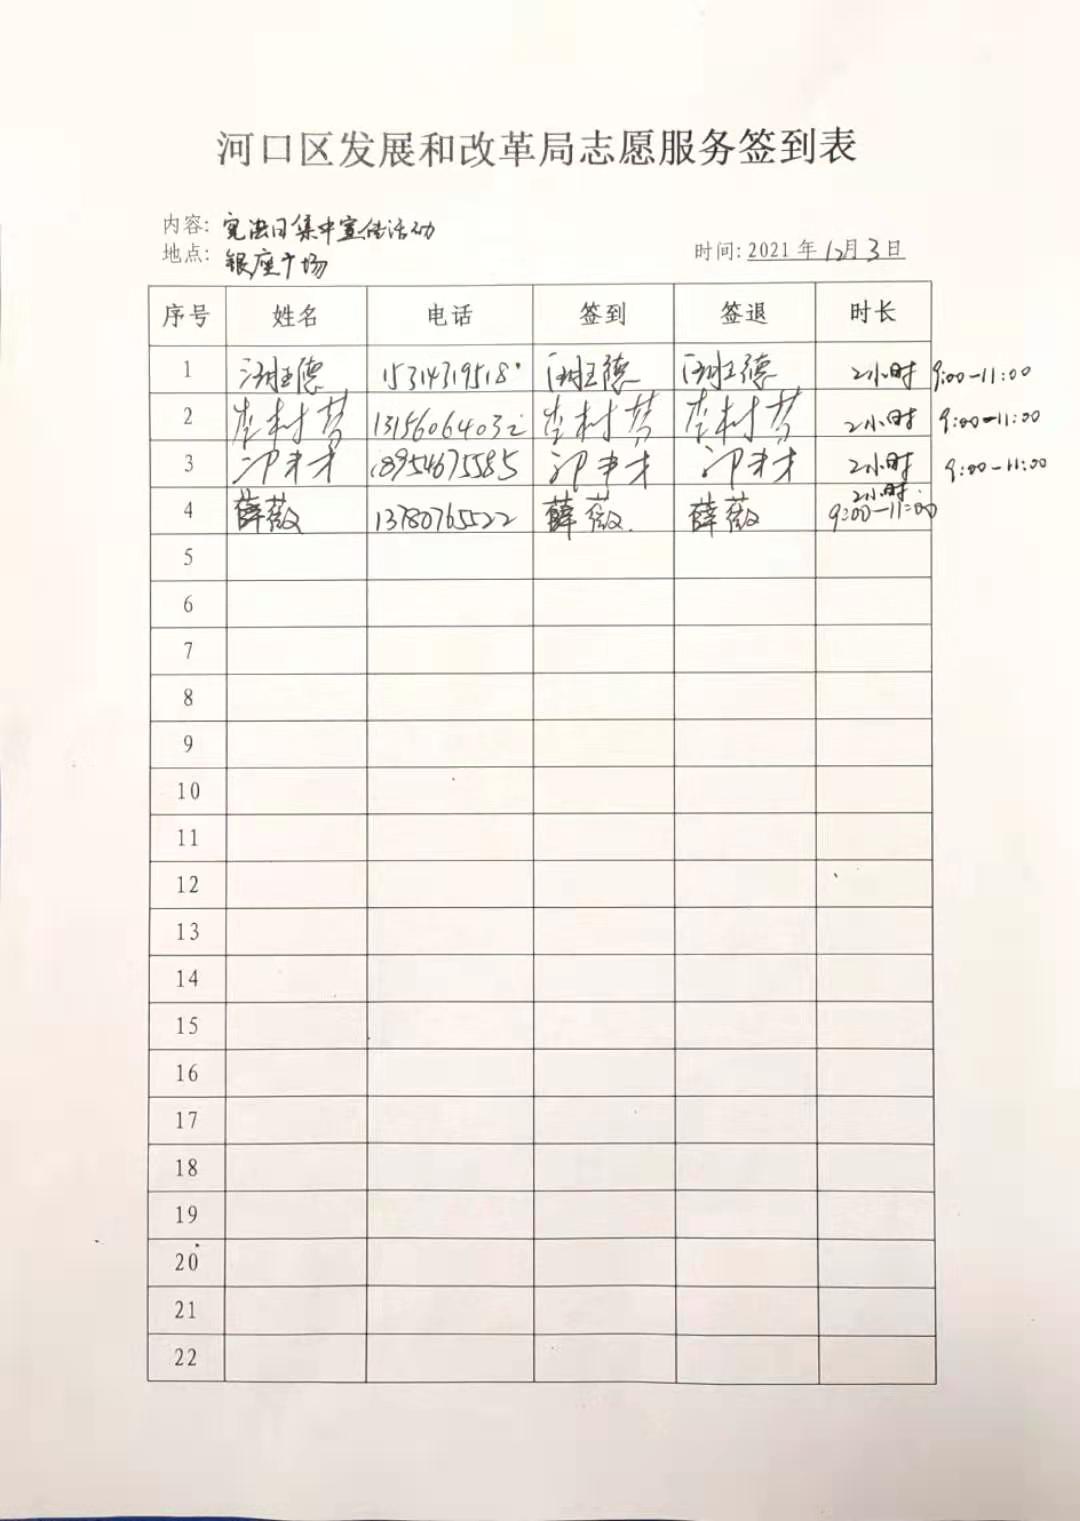 河口区发展和改革局志愿服务签到表
内容: 宪法日集中宣传活动
地点: 银座广场
时间: 2021 年 12月 3 日
序号 姓名 电话 签到 签退 时长
1 德 15314319518 德 德 2小时 9:00-11:00
2 李村梦 1315606403 李村梦 李村梦 2小时 9:00-11:00
3 18954675585 2小时 9:00-11:00
4 薛薇 13780765522 薛薇. 薛薇 2小时 9:00-11:00
5
6
7
8
9
10
11
12
13
14
15
16
17
18
19
20
21
22